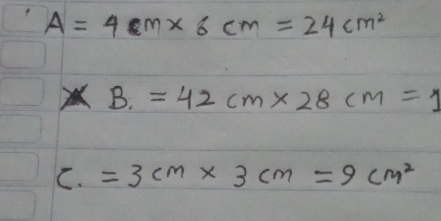 A = 4 cm × 6 cm = 24 cm²
B. = 42 cm × 28 cm = 1
C. = 3 cm × 3 cm = 9 cm²